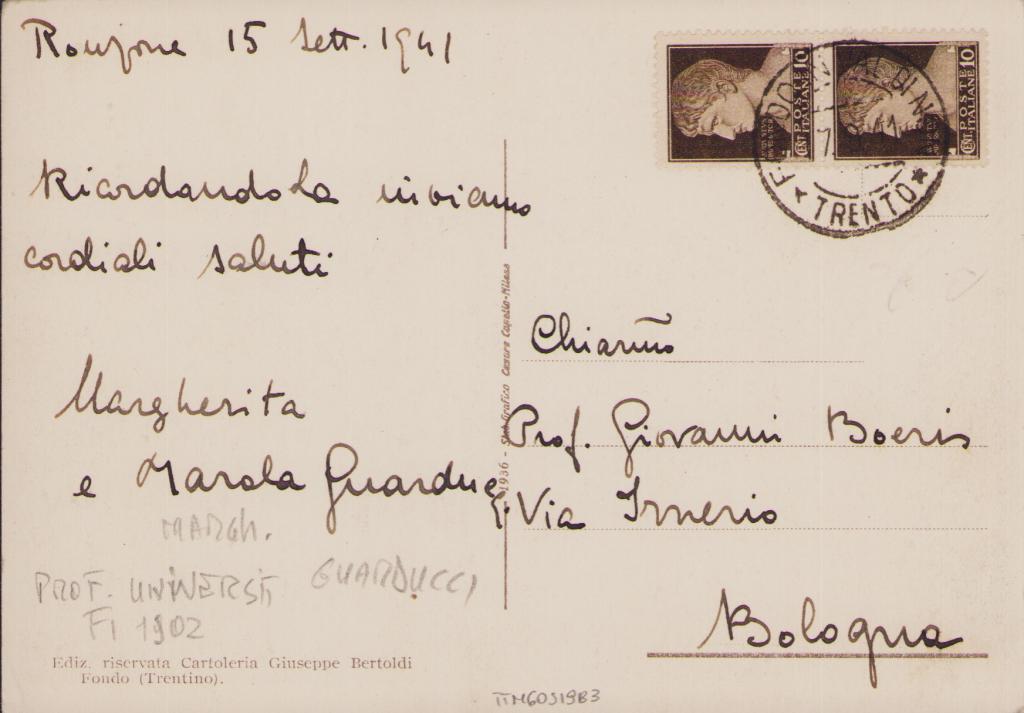 Ronzone 15 Sett. 1941
RicordandoLa inviamo
cordiali saluti
Margherita
e Guarducci
MARGH.
PROF. UNIVERSIT
GUARDUCCI
FI 1902
Ediz. riservata Cartoleria Giuseppe Bertoldi
Fondo (Trentino).
1936 - Stab. Grafico Cesare Capello - Milano
CENT 10
POSTE
ITALIANE
CENT 10
POSTE
ITALIANE
VAL DI NON
TRENTO
Chiar.mo
Prof. Giovanni Boeris
Via Irnerio
Bologna